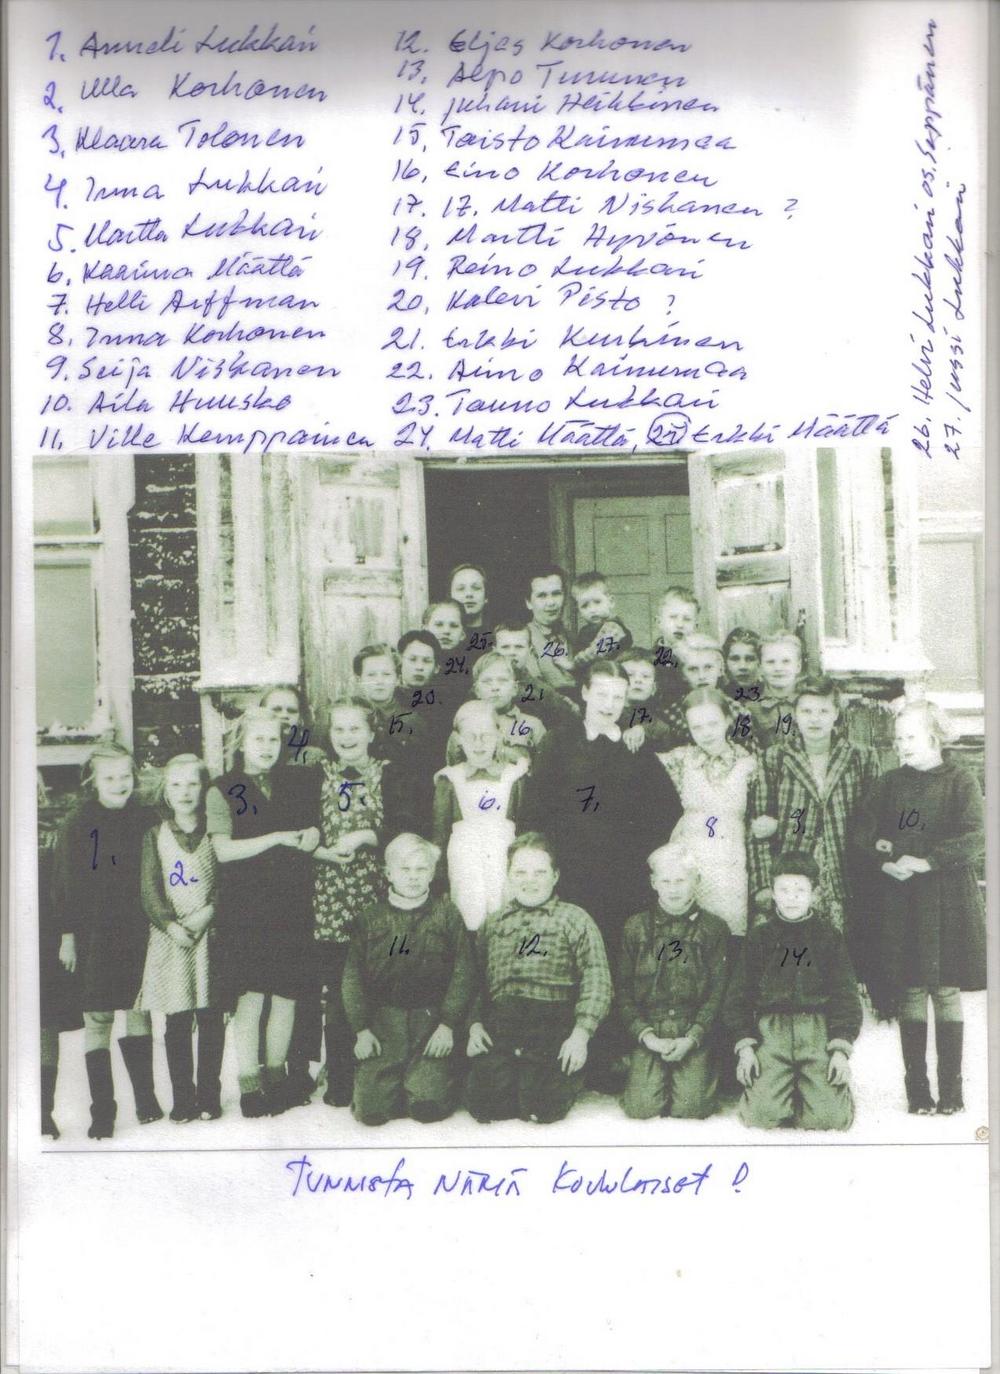 1. Anneli Lukkari
2. Ulla Korhonen
3. Klaara Tolonen
4. Irma Lukkari
5. Martta Lukkari
6. Kaarina Määttä
7. Helli Arffman
8. Irma Korhonen
9. Seija Niskanen
10. Aila Huusko
11. Ville Kemppainen
12. Eljas Korhonen
13. Alpo Turunen
14. Juhani Heikkinen
15. Taisto Kainumaa
16. Eino Korhonen
17. 17. Matti Niskanen ?
18. Martti Hyvönen
19. Reino Lukkari
20. Kalevi Pesto ?
21. Erkki Kurkinen
22. Aimo Kainumaa
23. Tauno Lukkari
24. Matti Määttä, 25 Erkki Määttä
26. Helvi Lukkari os. Seppänen
27. Jussi Lukkari
25. 26. 27. 22.
24. 23.
20. 21. 17. 18. 19.
15. 16.
4.
3. 5. 6. 7. 8. 9. 10.
1. 2.
11. 12. 13. 14.
TUNNISTA NÄMÄ KOULULAISET !